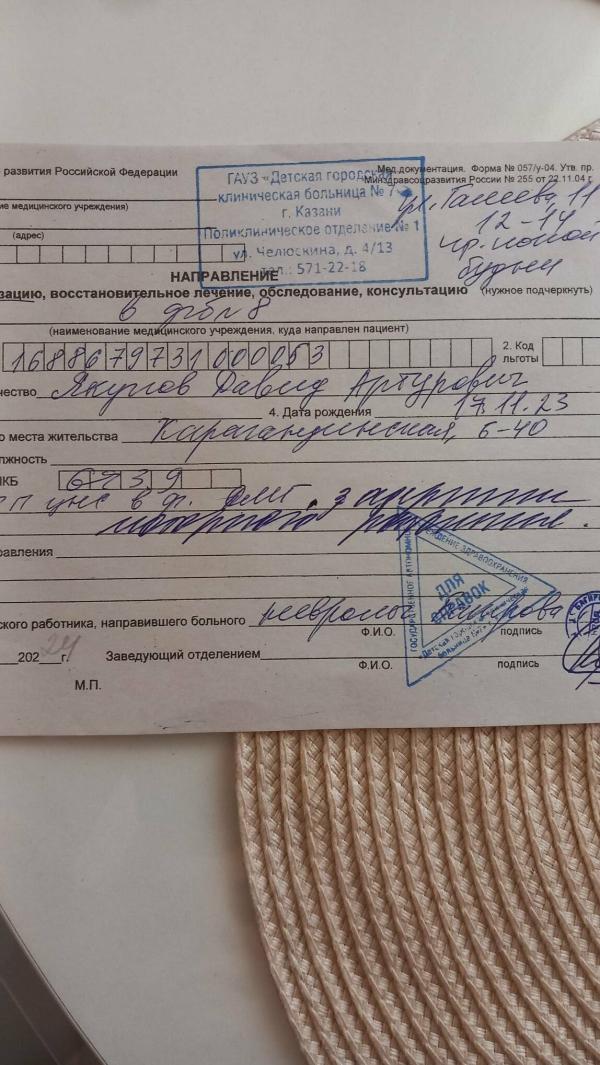 развития Российской Федерации
Мед.документация. Форма № 057/у-04. Утв. пр.
Минздравсоцразвития России № 255 от 22.11.04 г.
ГАУЗ «Детская городская
клиническая больница № 7»
г. Казани
Поликлиническое отделение № 1
ул. Челюскина, д. 4/13
тел.: 571-22-18
ие медицинского учреждения)
(адрес)
11
12-14
НАПРАВЛЕНИЕ
зацию, восстановительное лечение, обследование, консультацию (нужное подчеркнуть)
в
(наименование медицинского учреждения, куда направлен пациент)
1688679731000053
2. Код
льготы
чество Якупов Давид Артурович
4. Дата рождения 17.11.23
о места жительства Карагандинская, 6-40
лжность
МКБ G93.9
ПП ЦНС в ф.
равления
ского работника, направившего больного невролог
Ф.И.О. подпись
202 24 г. Заведующий отделением
Ф.И.О. подпись
М.П.
ДЛЯ
СПРАВОК